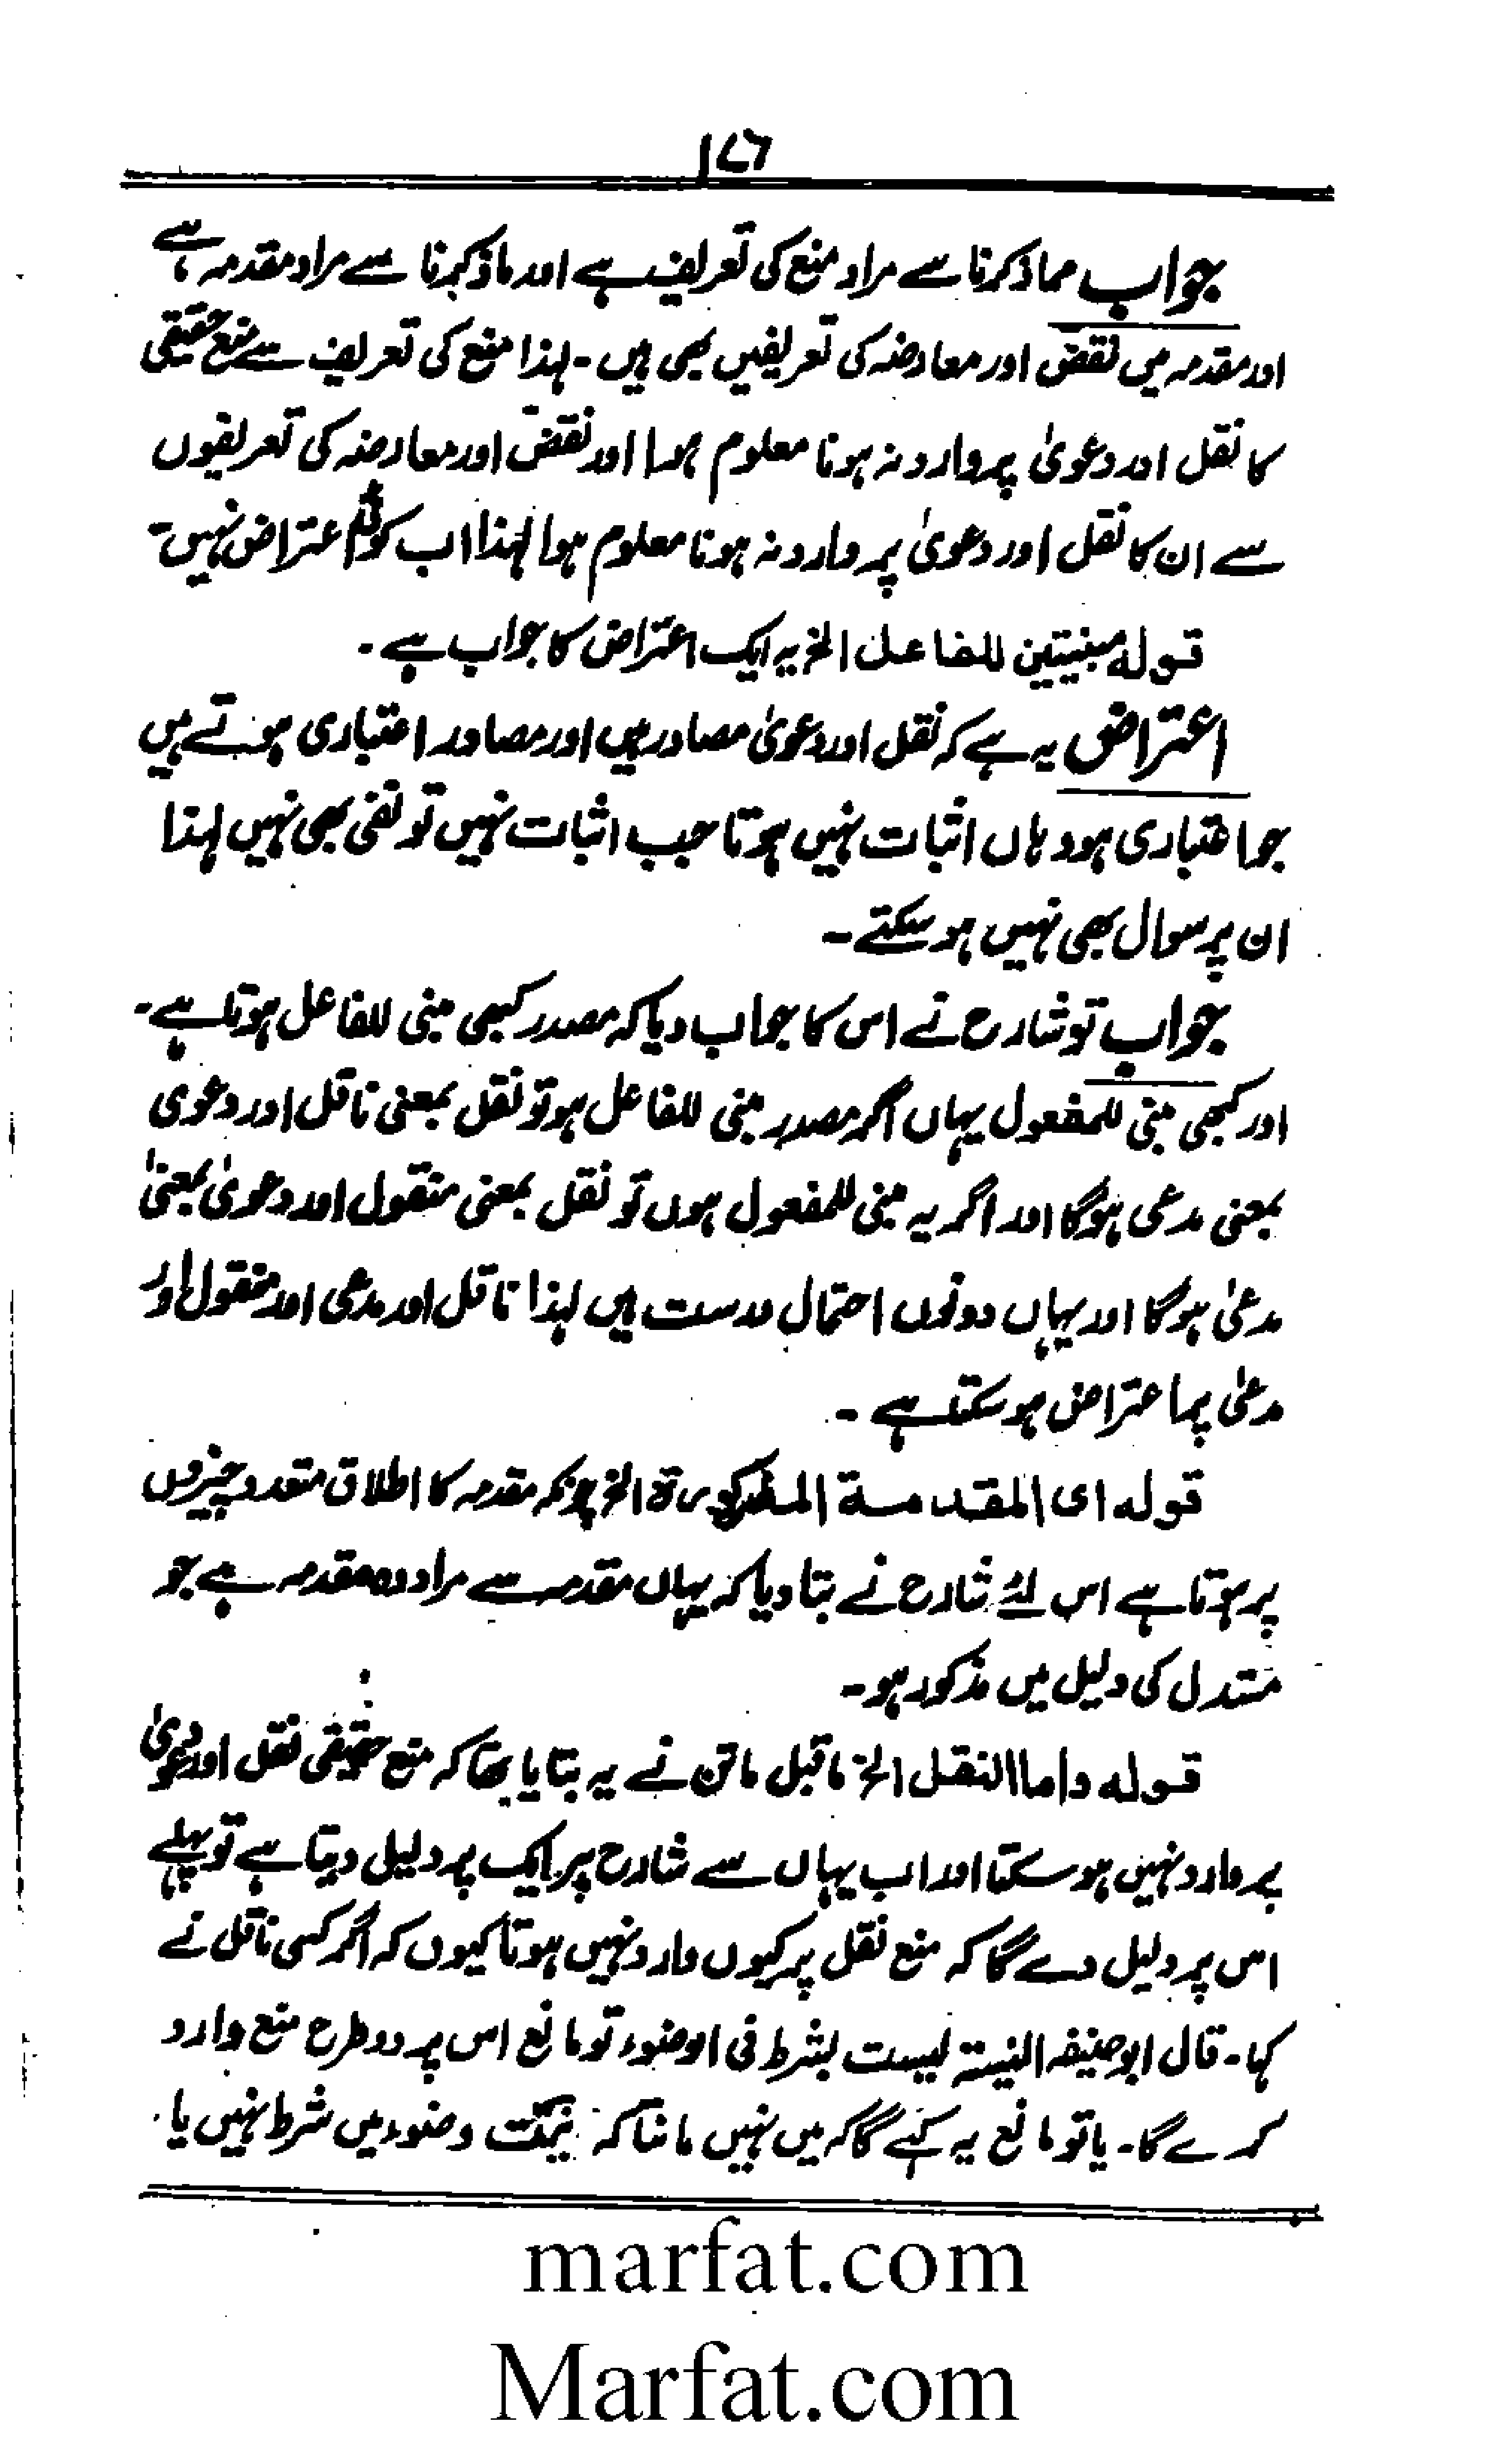 ۱۷۶
جواب مما ذکرنا سے مراد منع کی تعریف ہے اور ماذکرنا سے مراد مقدمہ ہے
اور مقدمہ میں نقض اور معارضہ کی تعریفیں بھی ہیں ۔ لہذا منع کی تعریف سے منع حقیقی
کا نقل اور دعویٰ پر وارد نہ ہونا معلوم ہوا اور نقض اور معارضہ کی تعریفوں
سے ان کا نقل اور دعویٰ پر وارد نہ ہونا معلوم ہوا لہذا اب کوئی اعتراض نہیں ۔
قولہ مبنیتین للفاعل الخ یہ ایک اعتراض کا جواب ہے ۔
اعتراض یہ ہے کہ نقل اور دعویٰ مصادر ہیں اور مصادر اعتباری ہوتے ہیں
جو اعتباری ہو وہاں اثبات نہیں ہوتا جب اثبات نہیں تو نفی بھی نہیں لہذا
ان پر سوال بھی نہیں ہو سکتے ۔
جواب تو شارح نے اس کا جواب دیا کہ مصدر کبھی مبنی للفاعل ہوتا ہے ۔
اور کبھی مبنی للمفعول یہاں اگر مصدر مبنی للفاعل ہو تو نقل بمعنی ناقل اور دعوی
بمعنی مدعی ہوگا اور اگر یہ مبنی للمفعول ہوں تو نقل بمعنی منقول اور دعویٰ بمعنیٰ
مدعیٰ ہوگا اور یہاں دونوں احتمال درست ہیں لہذا ناقل اور مدعی اور منقول اور
مدعیٰ پر اعتراض ہو سکتا ہے ۔
قولہ ای المقدمۃ المذکورۃ الخ چونکہ مقدمہ کا اطلاق متعدد چیزوں
پر ہوتا ہے اس لئے شارح نے بتا دیا کہ یہاں مقدمہ سے مراد وہ مقدمہ ہے جو
مستدل کی دلیل میں مذکور ہو ۔
قولہ واما النقل الخ ماقبل ماتن نے یہ بتایا تھا کہ منع حقیقی نقل اور دعویٰ
پر وارد نہیں ہو سکتا اور اب یہاں سے شارح ہر ایک پر دلیل دیتا ہے تو پہلے
اس پر دلیل دے گا کہ منع نقل پر کیوں وارد نہیں ہوتا کیوں کہ اگر کسی ناقل نے
کہا ۔ قال ابو حنیفہ النیۃ لیست بشرط فی الوضوء تو مانع اس پر دو طرح منع وارد
کرے گا ۔ یا تو مانع یہ کہے گا کہ میں نہیں مانتا کہ نیت وضوء میں شرط نہیں یا
marfat.com
Marfat.com